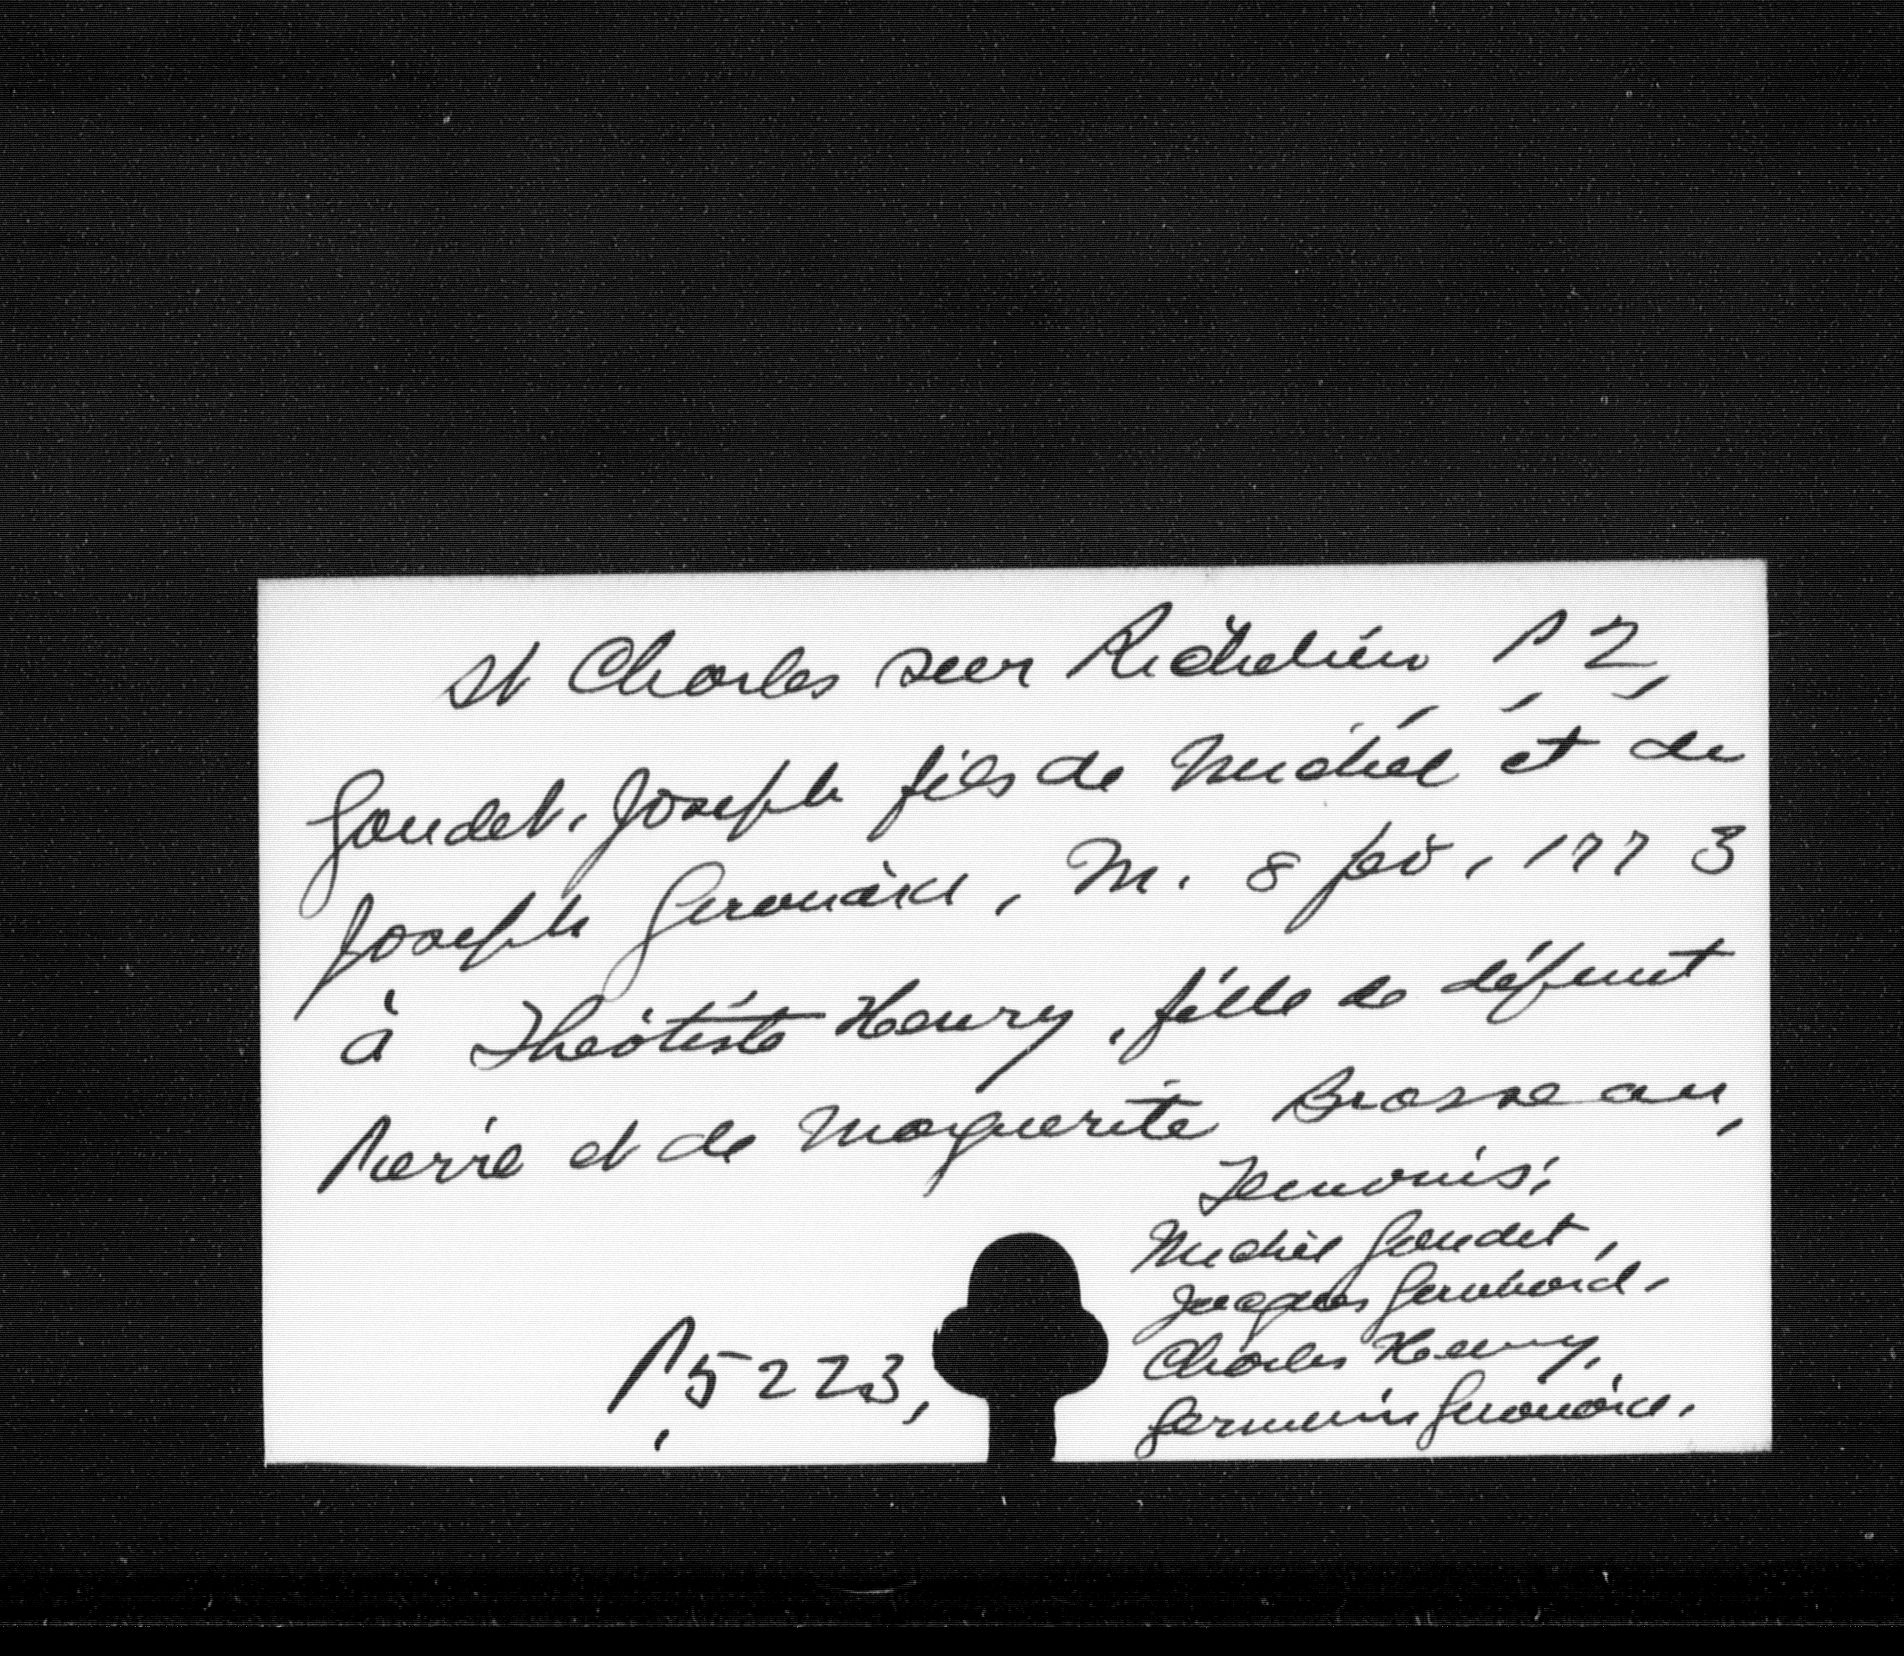 St Charles sur Richelieu P 2,
Gaudet, Joseph fils de Michel et de
Joseph Girouard, M. 8 fev, 1773
à Théotiste Henry, fille de défunt
Pierre et de Marguerite Brasseau,
Temoins:
Michel Gaudet,
Jacques Girouard.
Charles Henry,
Germain Girouard.
P. 5223,